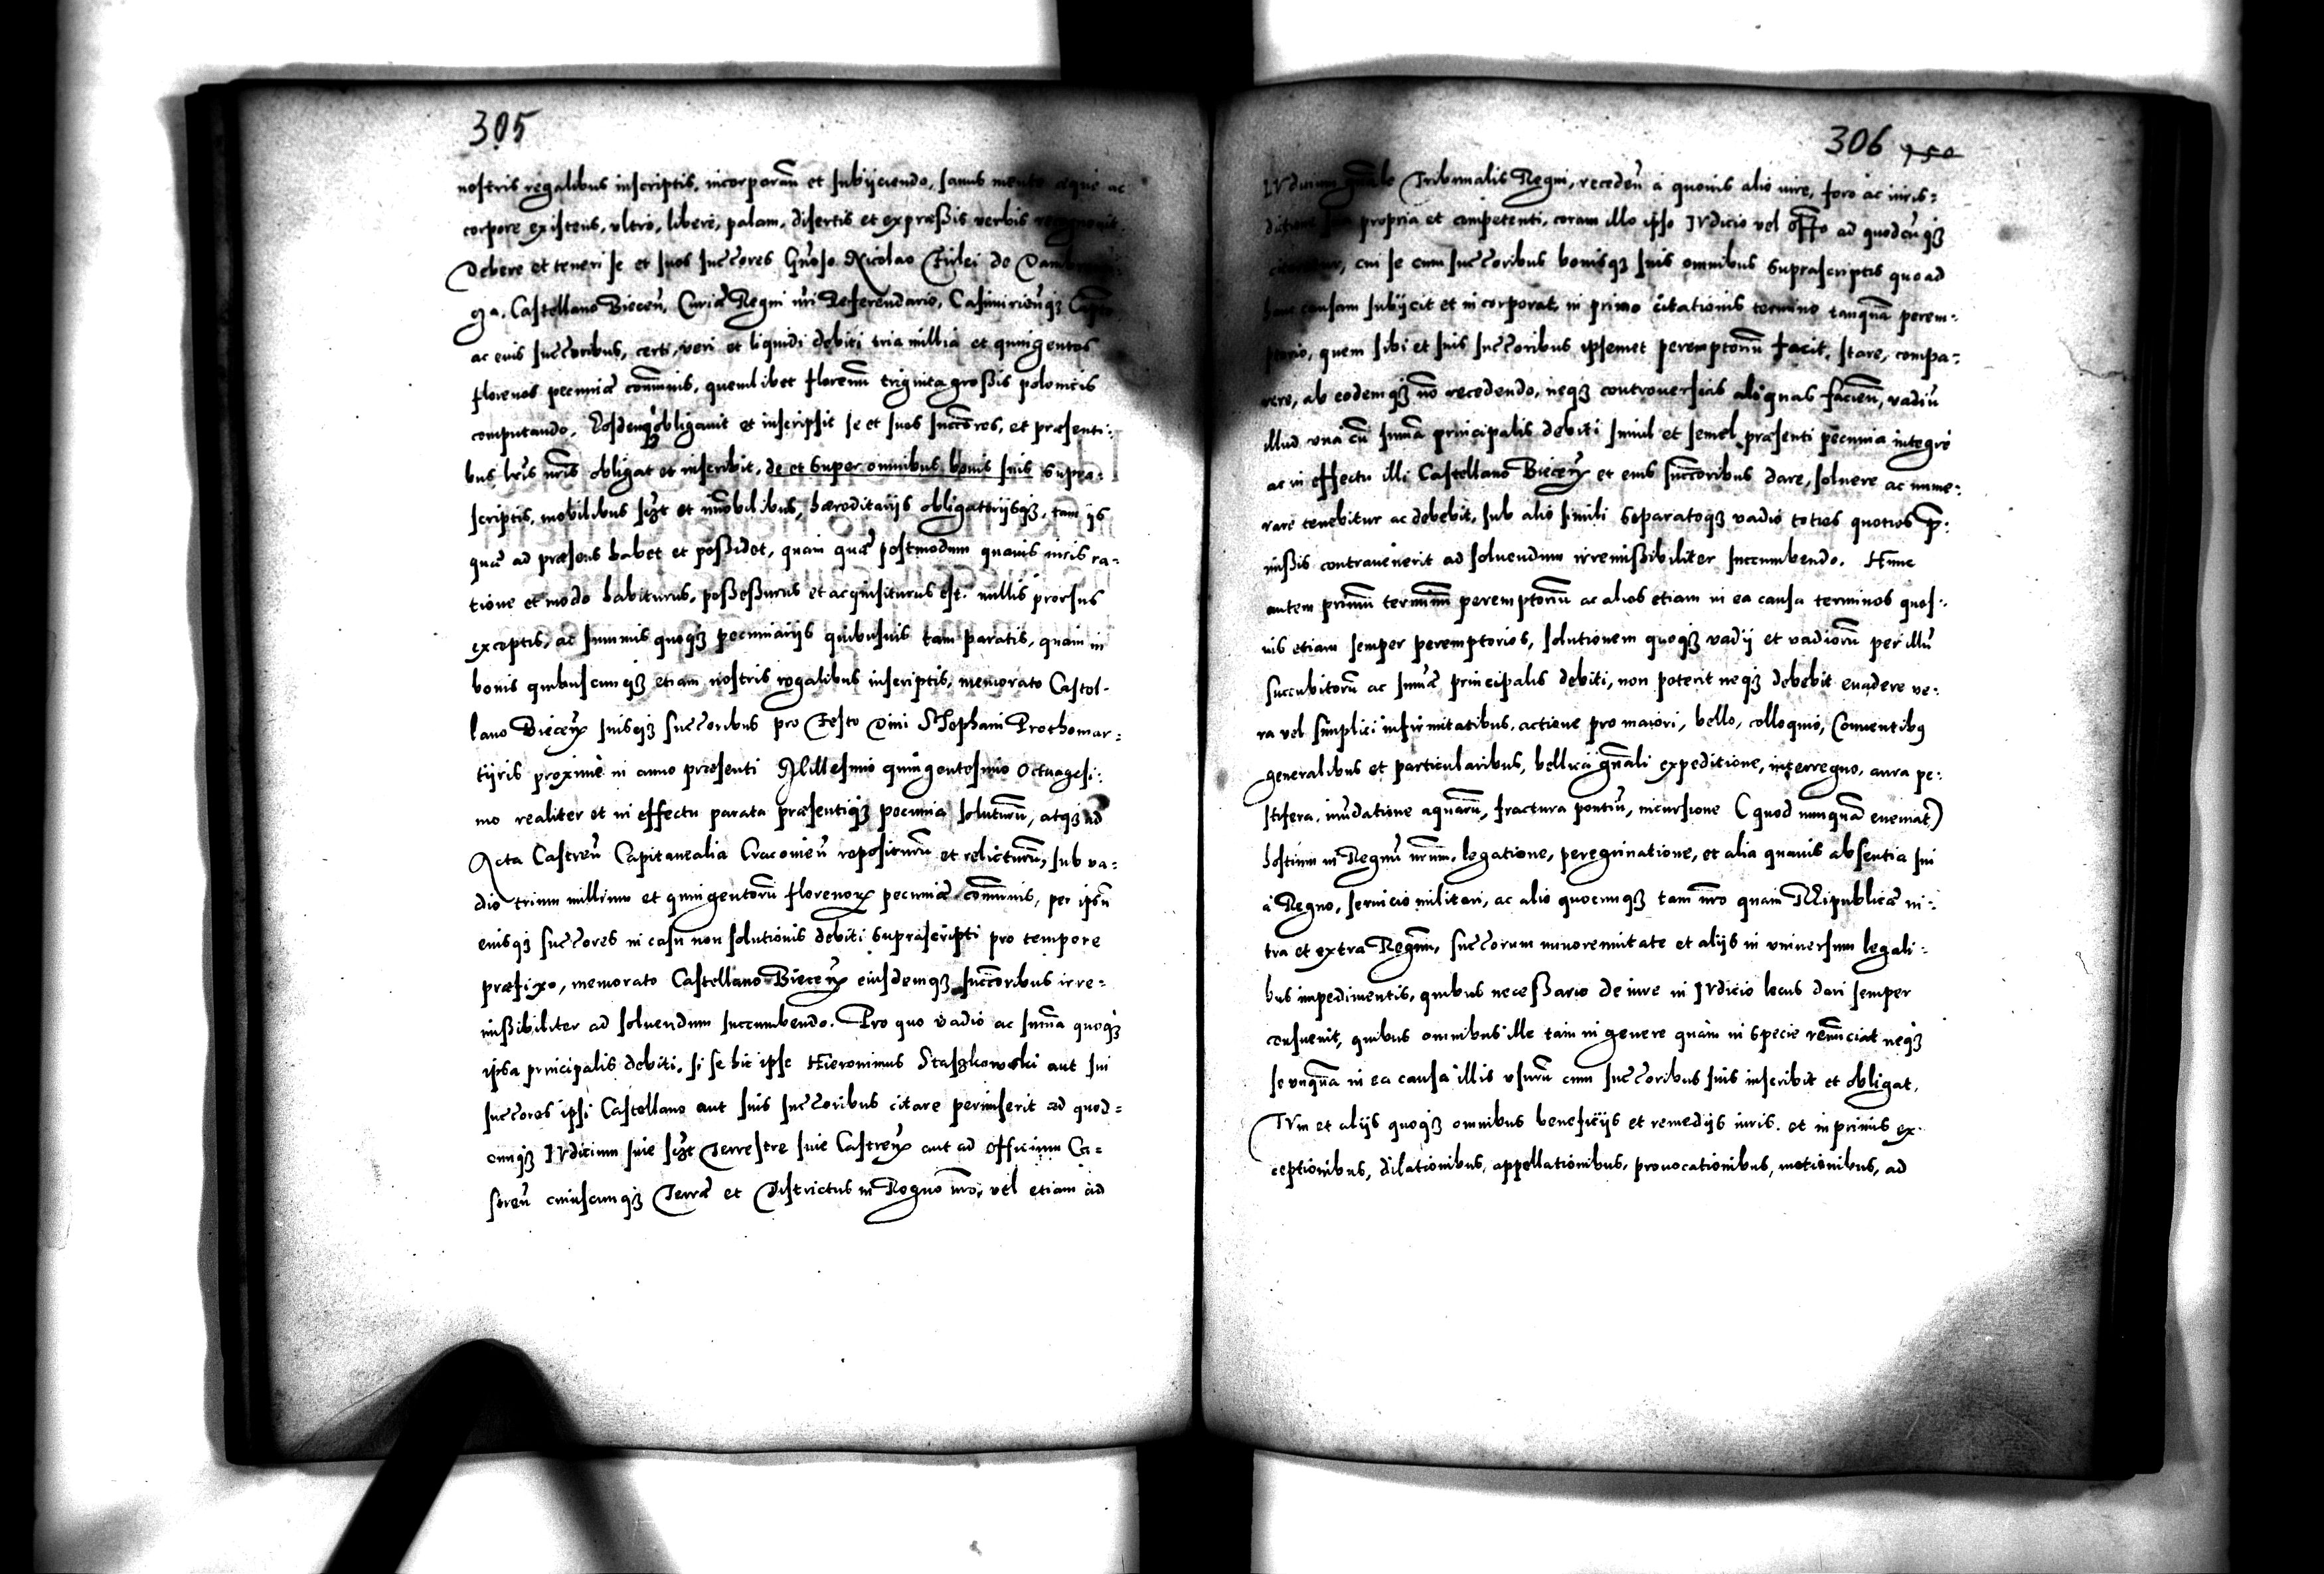 305
nostris regalibus inscriptis, incorporan̄ et subijciendo, sanus mente aeque ac
corpore existens, ultro, libere, palam, disertis et expraessis verbis recognovit.
Debere et teneri se et suos succores Gn̄oso Nicolao Firlei de Dambro-
Castellano Biecen̄, Curiæ Regni nr̄i Referendario, Casimirien̄q3
ac eius succoribus, certi, veri et liquidi debiti tria millia et quingentos
florenos pecuniæ com̄unis, quemlibet florenum triginta grossis polonicis
computando. Eosdemq3 obligavit et inscripsit se et suos succores, et præsenti-
bus lr̄is nr̄is obligat et inscribit, de et super omnibus bonis suis supra-
scriptis, mobilibus si3t et im̄obilibus, hæreditarijs obligatorijsq3, tam ijs
quæ ad præsens habet et possidet, quam quæ postmodum quavis iuris ra-
tione et modo habiturus, possessurus et acquisiturus est. nullis prorsus
exceptis, ac summis quoq3 pecuniarijs quibusvis tam paratis, quam in
bonis quibuscunq3 etiam nostris regalibus inscriptis, memorato Castel-
lano Biecen̄ suisq3 succoribus pro Festo Divi Stephani Prothomar-
tijris proximè in anno præsenti Millesimo quingentesimo Octuagesi-
mo realiter et in effectu parata præsentiq3 pecunia soluturū, atq3 ad
Acta Castren̄ Capitanealia Cracovien̄ repositurū et relicturū, sub va-
dio trium millium et quingentorū florenorꝝ pecuniæ com̄unis, per ipsū
eiusq3 succores in casu non solutionis debiti suprascripti pro tempore
præfixo, memorato Castellano Biecen̄ eiusdemq3 succoribus irre-
missibiliter ad solvendum succumbendo. Pro quo vadio ac sum̄a quoq3
ipsa principalis debiti, si se hic ipse Hieronimus Staszkowski aut sui
succores ipsi Castellano aut suis succoribus citare permiserit ad quod-
cunq3 Iudicium sive si3t Terrestre sive Castren̄ aut ad officium Ca-
stren̄ cuiuscunq3 Terræ et Districtus in Regno nr̄o, vel etiam ad
306 750
Iudicium gn̄ale Tribunalis Regni, receden̄ à quovis alio iure, foro ac iuris-
propria et competenti, coram illo ipso Iudicio vel off̄o ad quodcūq3
cui se cum succoribus bonisq3 suis omnibus suprascriptis quoad
hanc causam subijcit et incorporat, in primo citationis termino tanquā perem-
ptorio, quem sibi et suis succoribus ipsemet peremptoriū facit, stare, compa-
rere, ab eodemq3 nō recedendo, neq3 controversias aliquas facien̄, vadiū
illud una cū sum̄a principalis debiti simul et semel præsenti pecunia integrè
ac in effectu illi Castellano Biecen̄ et eius succoribus dare, solvere ac nume-
rare tenebitur ac debebit, sub alio simili separatoq3 vadio toties quoties p̄-
missis contravenerit ad solvendum irremissibiliter succumbendo. Hunc
autem primū terminū peremptoriū ac alios etiam in ea causa terminos quos-
vis etiam semper peremptorios, solutionem quoq3 vadij et vadiorū per illū
succubitorū ac sum̄æ principalis debiti, non poterit neq3 debebit evadere ve-
ra vel simplici infirmitatibus, actione pro maiori, bello, colloquio, Conventibus
generalibus et particularibus, bellica gn̄ali expeditione, interregno, aura pe-
stifera, inūdatione aquarū, fractura pontiū, incursione (quod nunquā eveniat)
hostium in Regnū nr̄um, legatione, peregrinatione, et alia quavis absentia sui
à Regno, servicio militari, ac alio quocunq3 tam nr̄o quam REipublicæ in-
tra et extra Regnū, succorum minorennitate et alijs in universum legali-
bus impedimentis, quibus necessario de iure in Iudicio locus dari semper
consuevit, quibus omnibus ille tam in genere quàm in specie renunciat neq3
se unquā in ea causa illis usurū cum succoribus suis inscribit et obligat.
Tum et alijs quoq3 omnibus beneficijs et remedijs iuris. et in primis ex-
ceptionibus, dilationibus, appellationibus, provocationibus, motionibus, ad